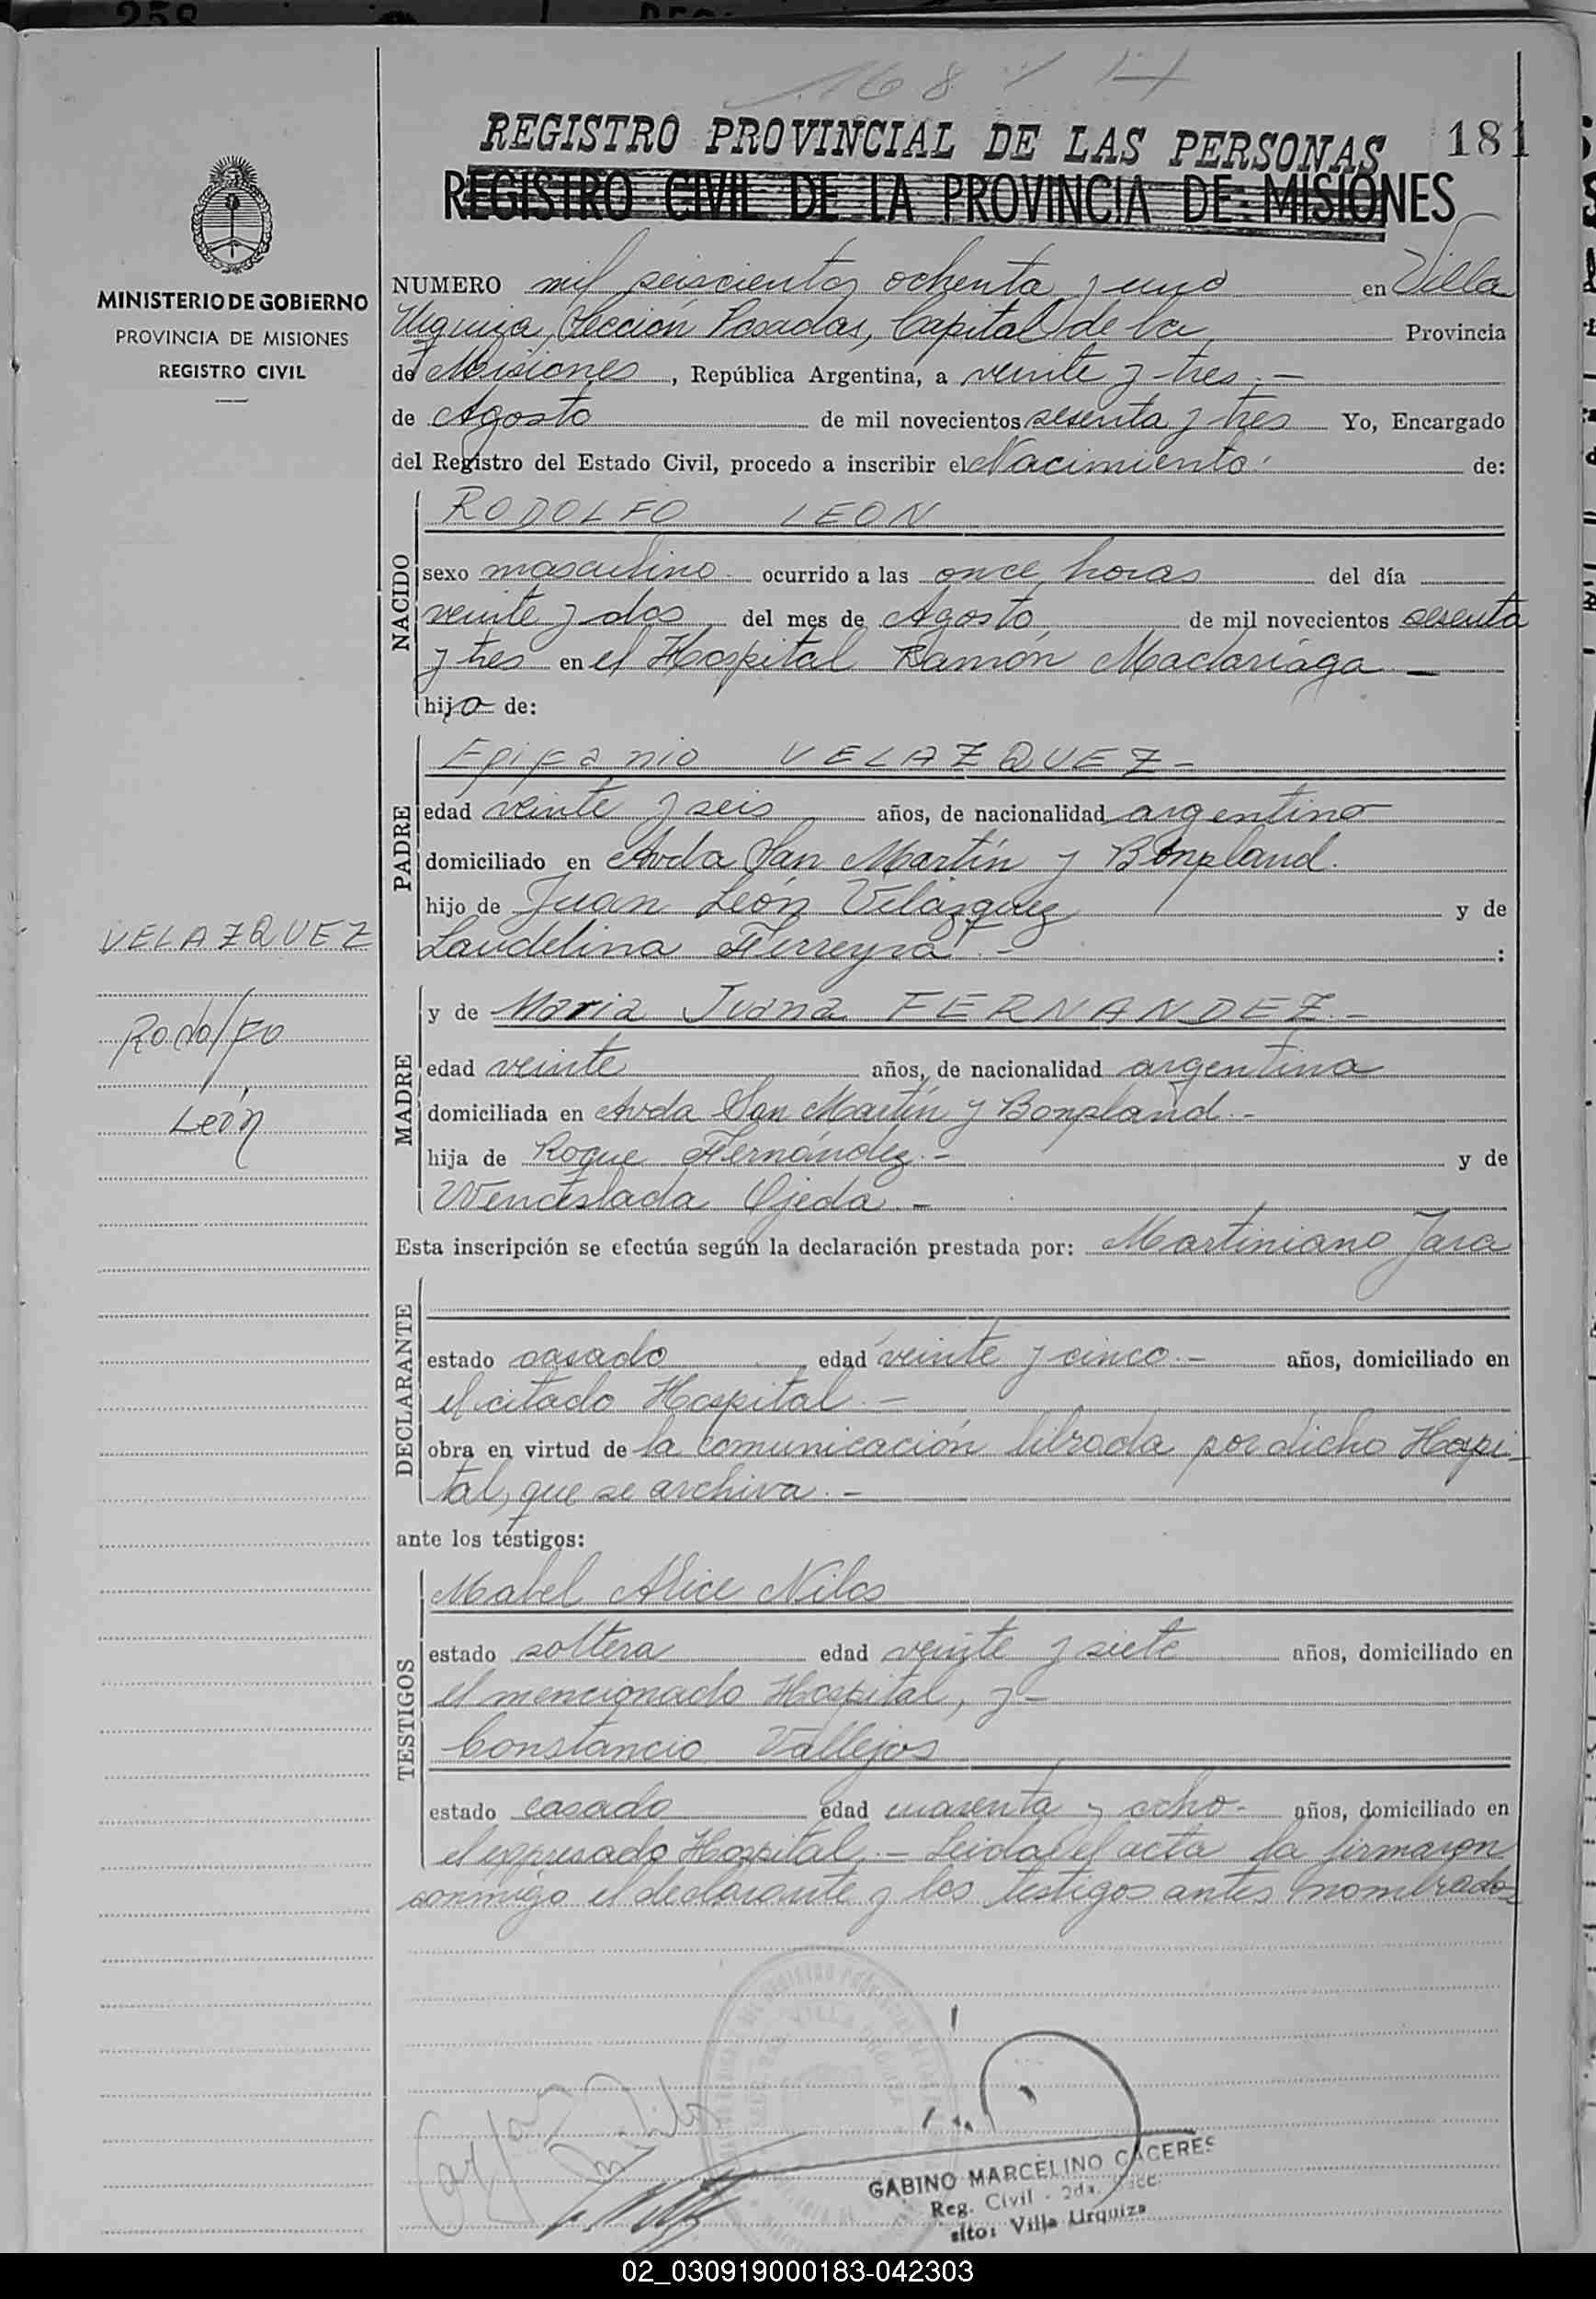 258
1681
181
REGISTRO PROVINCIAL DE LAS PERSONAS
REGISTRO CIVIL DE LA PROVINCIA DE MISIONES
MINISTERIO DE GOBIERNO
PROVINCIA DE MISIONES
REGISTRO CIVIL
NUMERO mil seiscientos ochenta y uno en Villa
Urquiza, Sección Posadas, Capital de la Provincia
de Misiones, República Argentina, a veinte y tres.-
de Agosto de mil novecientos sesenta y tres Yo, Encargado
del Registro del Estado Civil, procedo a inscribir el Nacimiento de:
NACIDO
RODOLFO LEON
sexo masculino ocurrido a las once horas del día
veinte y dos del mes de Agosto de mil novecientos sesenta
y tres en el Hospital Ramón Madariaga
hijo de:
PADRE
Epifanio VELAZQUEZ-
edad veinte y seis años, de nacionalidad argentino
domiciliado en Avda San Martín y Bonpland.
hijo de Juan León Velázquez y de
Laudelina Ferreyra.- :
VELAZQUEZ
Rodolfo
León
MADRE
y de Maria Juana FERNANDEZ.-
edad veinte años, de nacionalidad argentina
domiciliada en Avda San Martín y Bonpland.-
hija de Roque Fernández.- y de
Wenceslada Ojeda.-
Esta inscripción se efectúa según la declaración prestada por: Martiniano Jara
DECLARANTE
estado casado edad veinte y cinco.- años, domiciliado en
el citado Hospital.-
obra en virtud de la comunicación librada por dicho Hospi-
tal, que se archiva.-
ante los testigos:
TESTIGOS
Mabel Alice Nilos
estado soltera edad veinte y siete años, domiciliado en
el mencionado Hospital, y-
Constancio Vallejos
estado casado edad cuarenta y ocho- años, domiciliado en
el expresado Hospital.- Leida el acta la firmaron
conmigo el declarante y los testigos antes nombrados
GABINO MARCELINO CACERES
Reg. Civil - 2da. Secc.
sito: Villa Urquiza
02_030919000183-042303